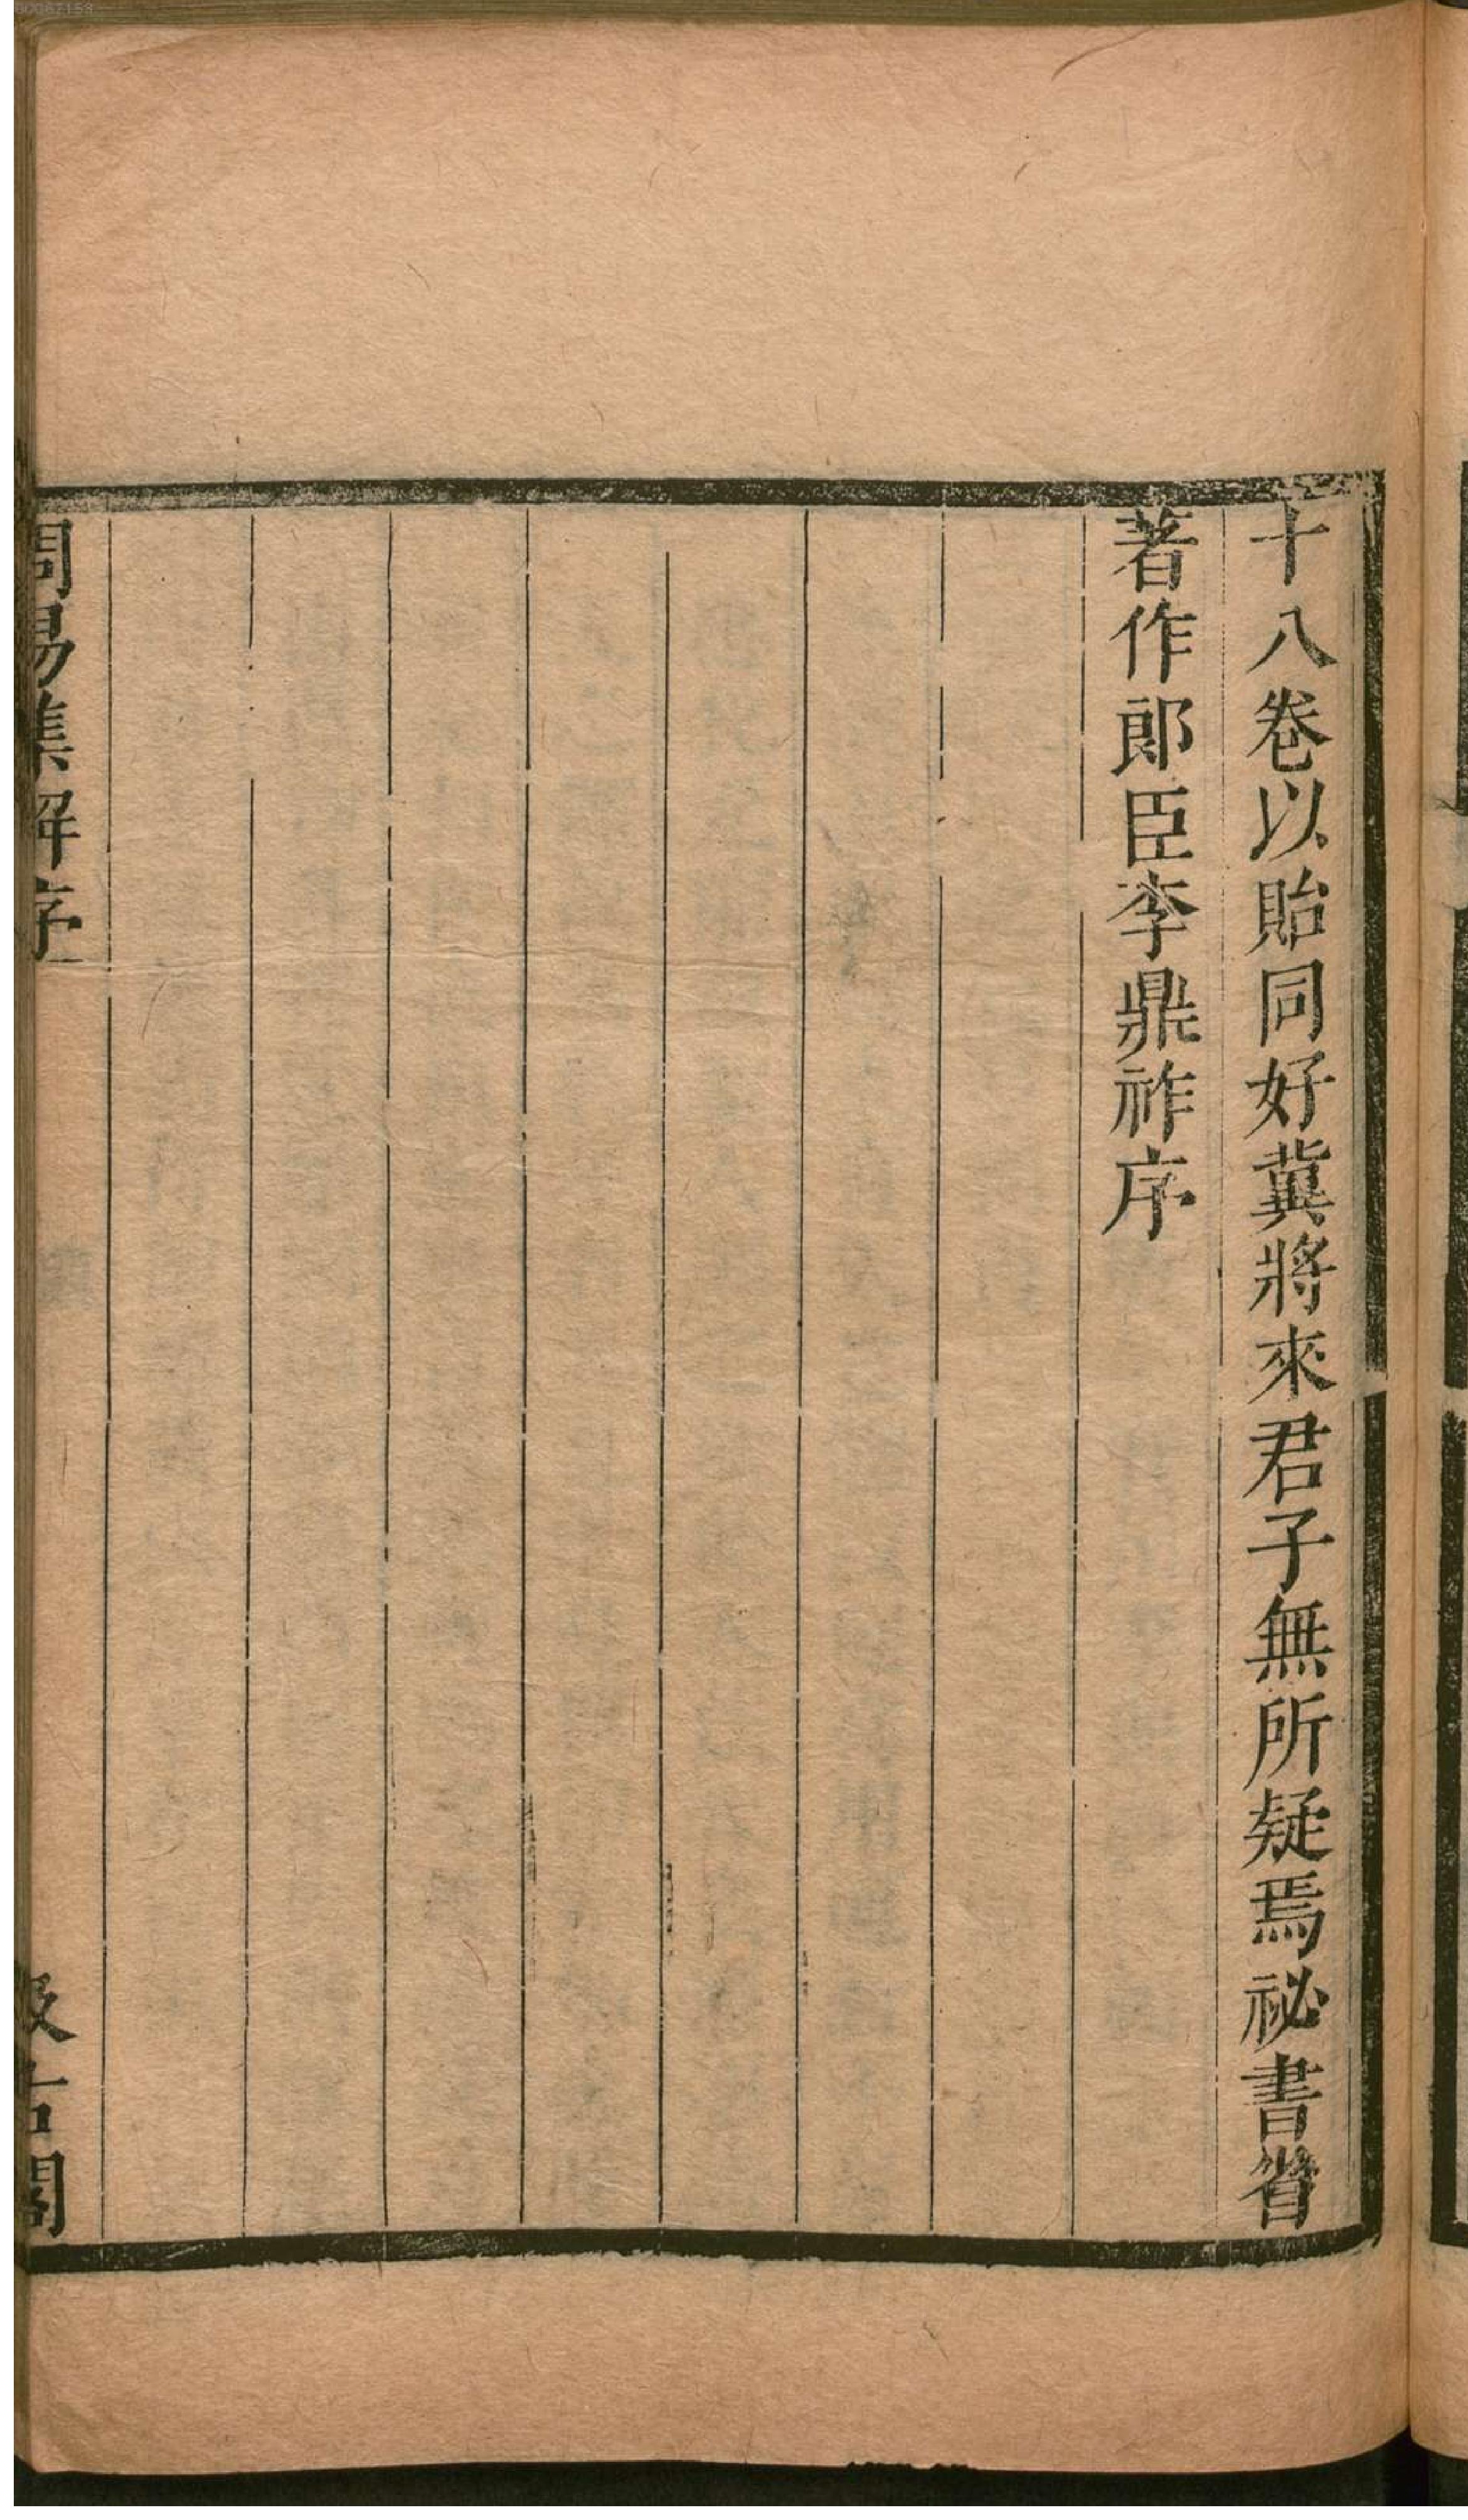 十八卷以貽同好冀將來君子無所疑焉祕書省
著作郎臣李鼎祚序
周易集解序
汲古閣